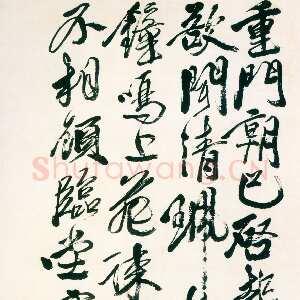 重門朝已啓起
欲聞清珮
鐘鳴上苑疎
不相顧臨堂
Shufawang.CN